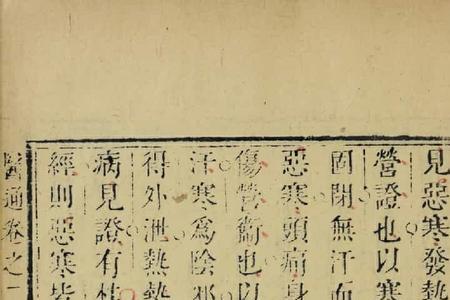 見惡寒發熱
營證也以寒
固閉無汗而
惡寒頭痛身
傷營衞也以
汗寒為陰邪
得外泄熱熱
病見證有
經則惡寒
醫通卷之